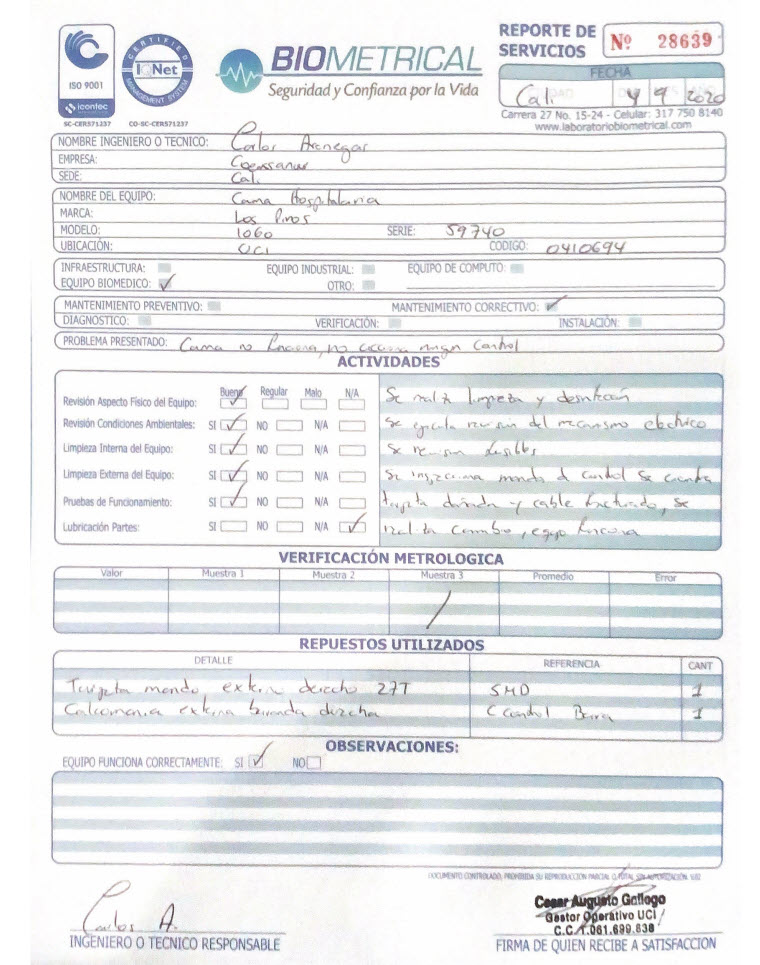 REPORTE DE SERVICIOS Nº 28639
ISO 9001
icontec
SC-CER571237
CERTIFIED
IQNet
MANAGEMENT SYSTEM
CO-SC-CER571237
BIOMETRICAL
Seguridad y Confianza por la Vida
FECHA
Cali 4 9 2020
Carrera 27 No. 15-24 - Celular: 317 750 8140
www.laboratoriobiometrical.com
NOMBRE INGENIERO O TECNICO: Carlos
EMPRESA:
SEDE: Cali
NOMBRE DEL EQUIPO: Cama Hospitalaria
MARCA: Los Pinos
MODELO: 1060 SERIE: 59740
UBICACIÓN: UCI CODIGO: 0410694
INFRAESTRUCTURA: EQUIPO INDUSTRIAL: EQUIPO DE COMPUTO:
EQUIPO BIOMEDICO: ✓ OTRO:
MANTENIMIENTO PREVENTIVO: MANTENIMIENTO CORRECTIVO: ✓
DIAGNOSTICO: VERIFICACIÓN: INSTALACIÓN:
PROBLEMA PRESENTADO: Cama no funciona, no acciona ningn control
ACTIVIDADES
Bueno Regular Malo N/A
Revisión Aspecto Físico del Equipo: ✓
Revisión Condiciones Ambientales: SI ✓ NO N/A
Limpieza Interna del Equipo: SI ✓ NO N/A
Limpieza Externa del Equipo: SI ✓ NO N/A
Pruebas de Funcionamiento: SI ✓ NO N/A
Lubricación Partes: SI NO N/A ✓
Se realiza limpieza y desinfección
Se ejecuta revision del mecanismo electrico
Se revisan fusibles
Se inspecciona mando d control se cuentra
tarjeta dañada y cable fracturado, se
realiza cambio, equipo funciona
VERIFICACIÓN METROLOGICA
Valor Muestra 1 Muestra 2 Muestra 3 Promedio Error
REPUESTOS UTILIZADOS
DETALLE REFERENCIA CANT
Tarjeta mando externo derecho 27T SMD 1
Calcomania externa baranda derecha C control 1
OBSERVACIONES:
EQUIPO FUNCIONA CORRECTAMENTE: SI ✓ NO
DOCUMENTO CONTROLADO, PROHIBIDA SU REPRODUCCIÓN PARCIAL O TOTAL SIN AUTORIZACIÓN
Carlos A.
INGENIERO O TECNICO RESPONSABLE
Cesar Augusto Gallego
Gestor Operativo UCI
C.C 1.061.699.638
FIRMA DE QUIEN RECIBE A SATISFACCION